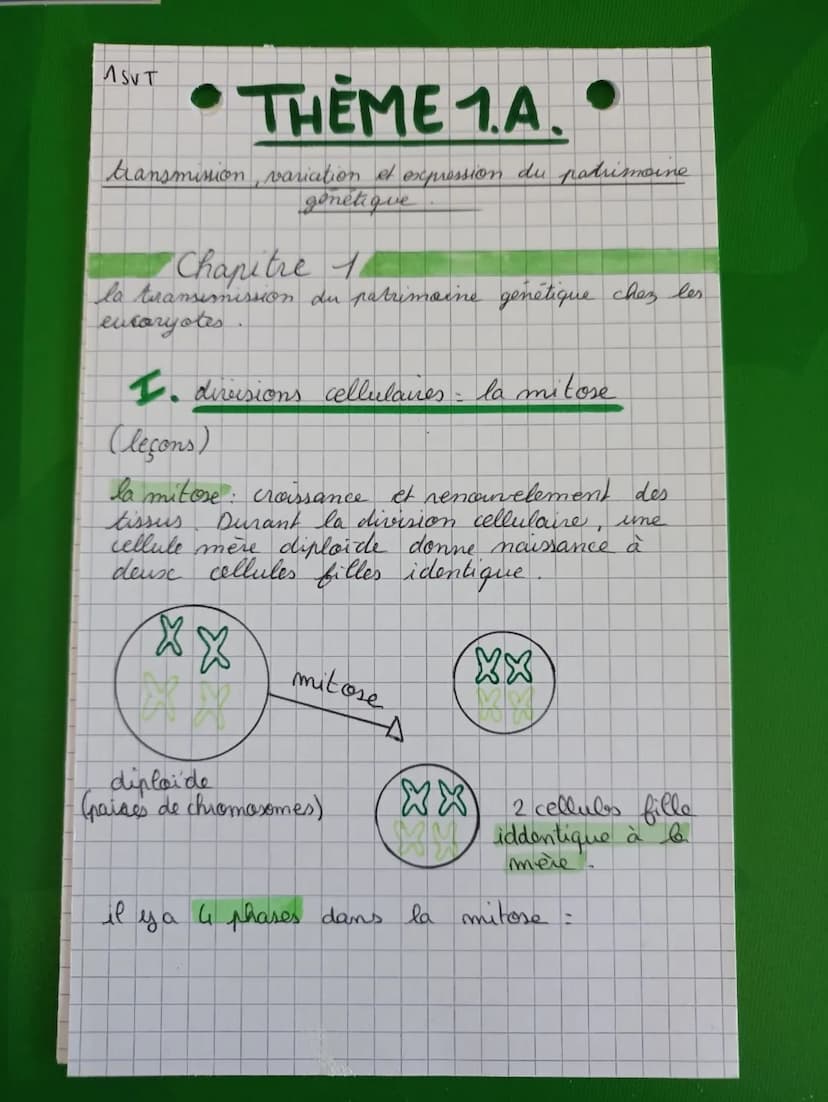 1 SVT
THÈME 1.A.
transmission, variation et expression du patrimoine
génétique.
Chapitre 1
la transmission du patrimoine génétique chez les
eucaryotes.
I. divisions cellulaires = la mitose
(leçons)
la mitose : croissance et renouvelement des
tissus. Durant la division cellulaire, une
cellule mère diploïde donne naissance à
deux cellules filles identique.
mitose
diploïde
(paires de chromosomes)
2 cellules fille
iddentique à la
mère.
il y a 4 phases dans la mitose :